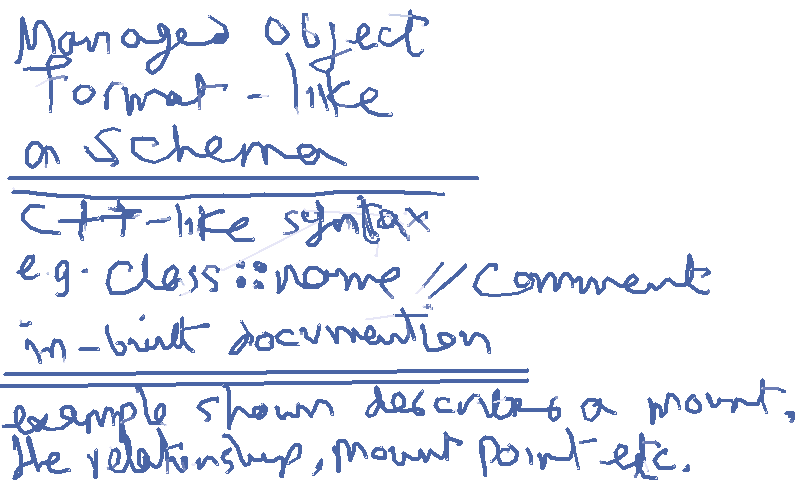 Managed Object
Format - like
a schema
C++-like syntax
e.g. Class::name // Comment
in-built documention
example shown describes a mount,
the relationship, mount point etc.